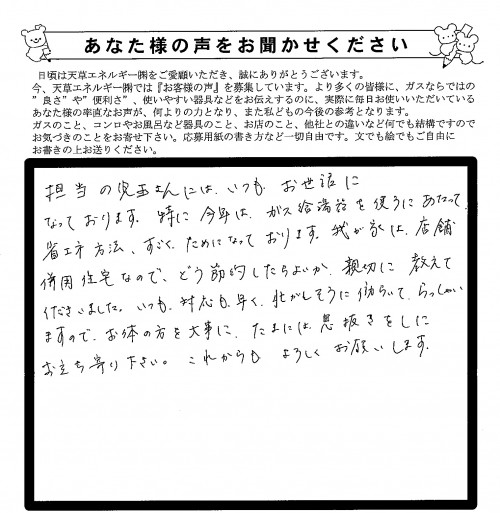 あなた様の声をお聞かせください
日頃は天草エネルギー㈱をご愛顧いただき、誠にありがとうございます。
今、天草エネルギー㈱では『お客様の声』を募集しています。より多くの皆様に、ガスならではの
”良さ”や”便利さ”、使いやすい器具などをお伝えするのに、実際に毎日お使いいただいている
あなた様の率直なお声が、何よりの力となり、また私どもの今後の参考となります。
ガスのこと、コンロやお風呂など器具のこと、お店のこと、他社との違いなど何でも結構ですので
お気づきのことをお寄せ下さい。応募用紙の書き方など一切自由です。文でも絵でもご自由に
お書きの上お送りください。
担当の児玉さんには、いつも お世話に
なっております。特に 今年は、ガス給湯器を使うにあたって、
省エネ方法、すごく、ためになっております。我が家は、店舗
併用住宅なので、どう節約したらよいか、親切に 教えて
くださいました。いつも、対応も、早く、忙がしそうに働らいて、らっしゃい
ますので、お体の方を大事に、たまには、息抜きをしに
お立ち寄り下さい。これからも よろしく お願いします。